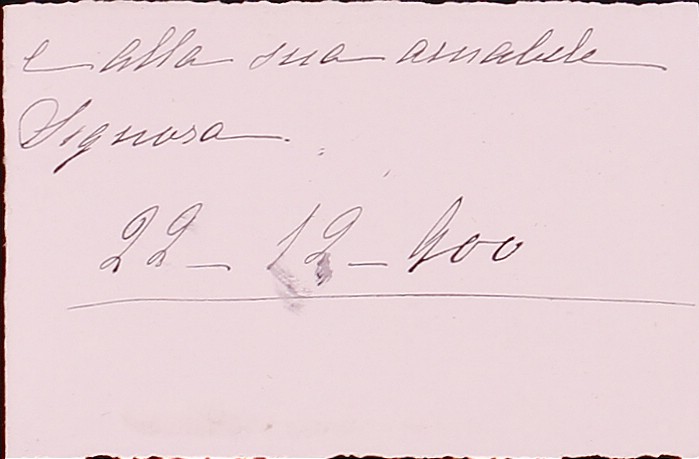 e alla sua amabile
Signora.
22-12-900